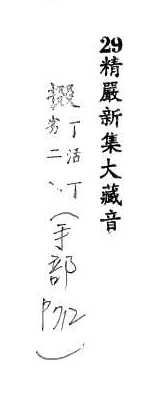 29精嚴新集大藏音
丁活丁
劣二
(手部P712)